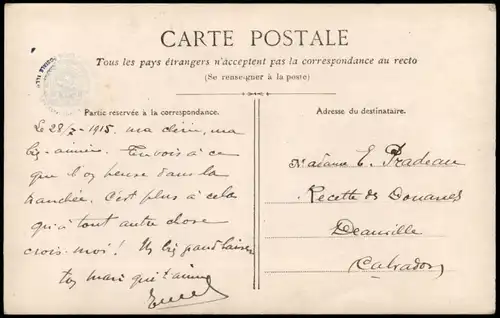 CARTE POSTALE
Tous les pays étrangers n'acceptent pas la correspondance au recto
(Se renseigner à la poste)
Partie reservée à la correspondance.
Adresse du destinataire.
Le 28/ 1915. ma chérie, ma
bien-aimée. Tu vois à ce
que l'on pense dans la
tranchée. C'est plus à cela
qu'à tout autre chose
crois-moi! Un big grand baiser
ton mari qui t'aime
Madame E. Pradeau
Recette des Douanes
Deauville
Calvados